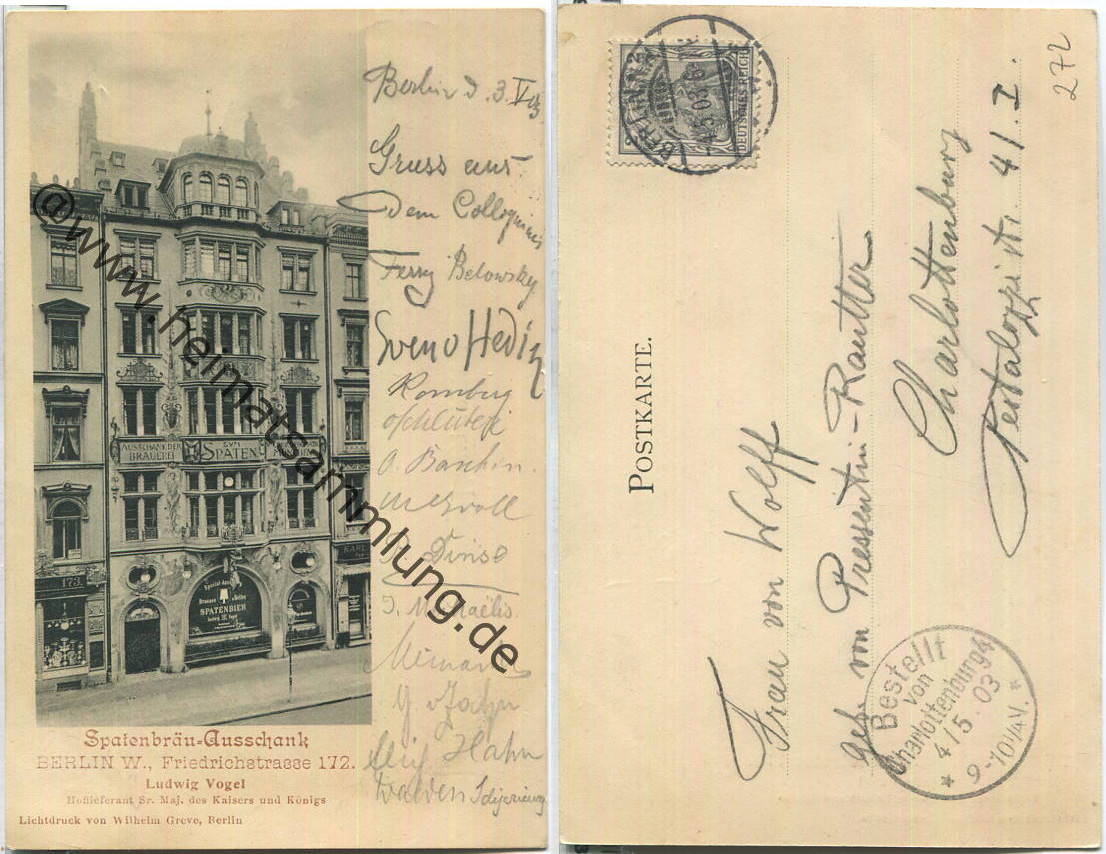 Berlin d. 3. V 03
Gruss aus
dem Colloquium
Ferry Belowsky
Sven v Hedin
Romberg
O. Baschin.
Dinse
Michaëlis
G. v Zahn
Hahn
173.
AUSSCHANK DER
BRAUEREI
ZUM
SPATEN
SPATENBIER
KARL
Spatenbräu-Ausschank
BERLIN W., Friedrichstrasse 172.
Ludwig Vogel
Hoflieferant Sr. Maj. des Kaisers und Königs
Lichtdruck von Wilhelm Greve, Berlin
@www.heimatsammlung.de
BERLIN
4.5.03
DEUTSCHES REICH
POSTKARTE.
Frau von Wolff
geb. von Pressentin-Rautter
Charlottenburg
Pestalozzistr. 41. I.
272
Bestellt
von
Charlottenburg 4
4/5.03
9-10¼V.